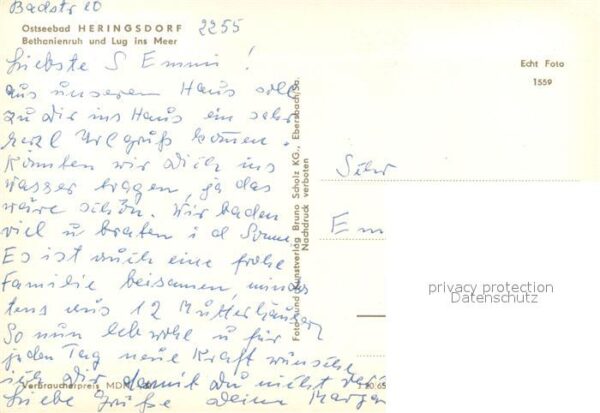 Badstr 20
Ostseebad HERINGSDORF 2255
Bethanienruh und Lug ins Meer
Echt Foto
1559
Liebste S Emmi!
aus unserem Haus soll
zu Dir ins Haus ein sehr
herzl Urlgruß kommen.
Könnten wir Dich ins
Wasser tragen, ja das
wäre schön. Wir baden
viel u braten i d Sonne.
Es ist auch eine frohe
Familie beisamen, mindes
tens aus 12 Mutterhäuser
So nun leb wohl u für
jeden Tag neue Kraft wünsche
ich Dir damit Du nicht
Liebe Grüße Deine
Foto und Kunstverlag Bruno Scholz KG., Ebersbach/Sa.
Nachdruck verboten
Em
privacy protection
Datenschutz
Verbraucherpreis MDN